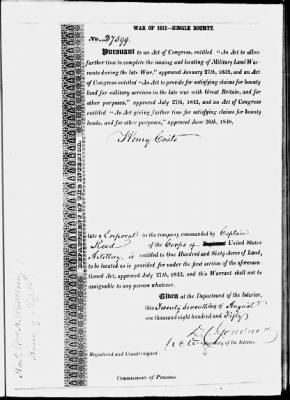 WAR OF 1812—SINGLE BOUNTY.
No. 27599.
Pursuant to an Act of Congress, entitled "An Act to allow
further time to complete the issuing and locating of Military Land War-
rants during the late War," approved January 27th, 1835, and an Act
of Congress entitled "An Act to provide for satisfying claims for bounty
land for military services in the late war with Great Britain, and for
other purposes," approved July 27th, 1842, and an Act of Congress
entitled "An Act giving further time for satisfying claims for bounty
lands, and for other purposes," approved June 26th, 1848,
Henry Coats
late a Corporal in the company commanded by Captain
Reed of the Corps of United States
Artillery, is entitled to One Hundred and Sixty Acres of Land,
to be located as is provided for under the first section of the aforemen-
tioned Act, approved July 27th, 1842, and this Warrant shall not be
assignable to any person whatever.
Given at the Department of the Interior,
this Twenty seventh day of August
one thousand eight hundred and Fifty
Secretary of the Interior.
Registered and Countersigned
Commissioner of Pensions